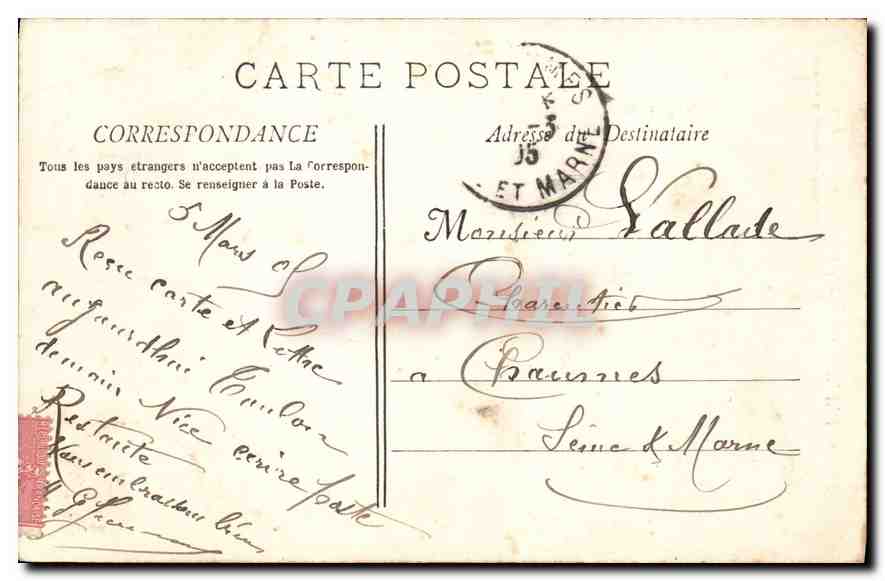 CARTE POSTALE
CORRESPONDANCE
Tous les pays étrangers n'acceptent pas La Correspon-
dance au recto. Se renseigner à la Poste.
5 Mars 05
Reçu carte et Lettre
aujourdhui Toulon
demain Nice ecrire poste
Restante
Vous embrassons bien
Adresse du Destinataire
Monsieur Vallade
Charentier
a Chaumes
Seine & Marne
MES
-3
05
ET MARNE
CPAPHIL